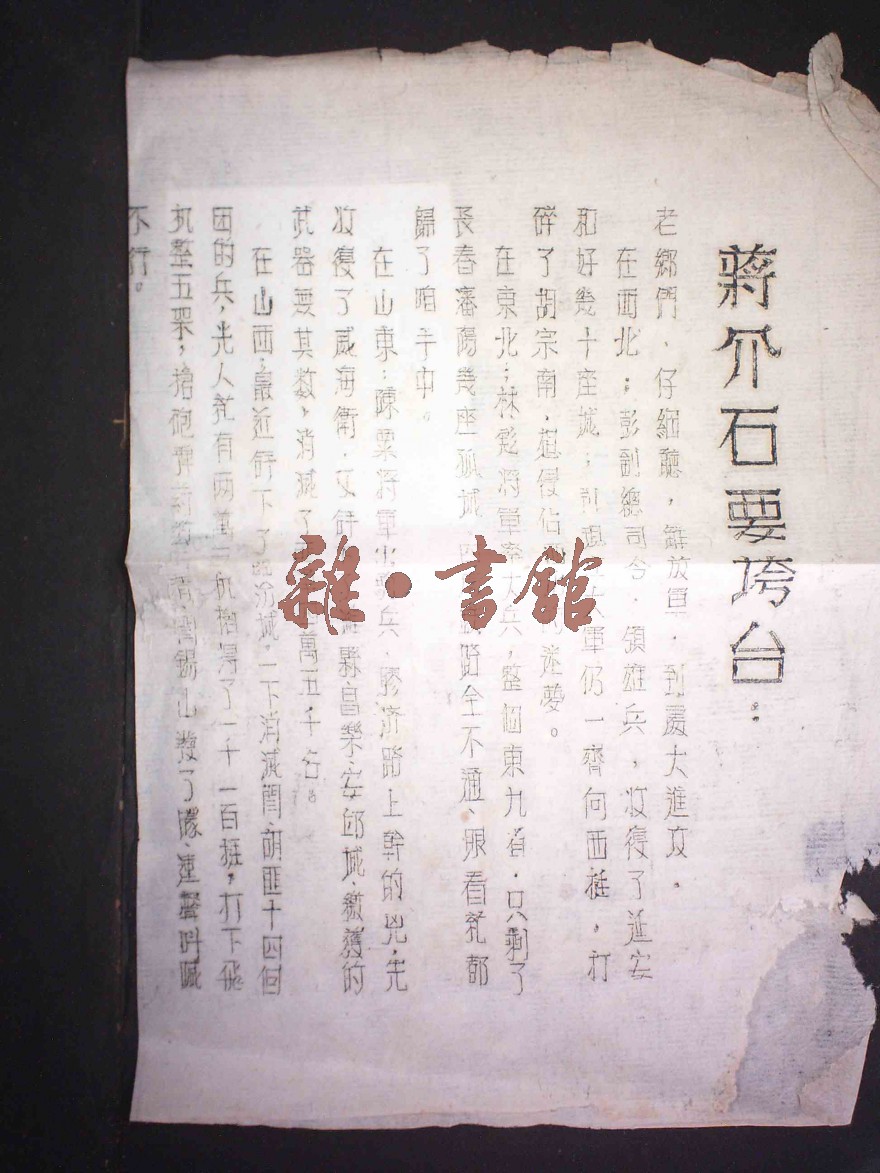 蔣介石要垮台：
老鄉們、仔細聽，解放軍．到處大進攻．
在西北；彭副總司令．領雄兵，收復了延安
和好幾十座城；大軍仍一齊向西挺．打
碎了胡宗南．想侵佔迷夢。
在東北；林彪將軍率大兵，整個東九省．只剩了
長春瀋陽幾座孤城．路全不通、眼看就都
歸了咱手中。
在山東；陳粟將軍出兵．膠济路上幹的兇，先
收復了威海衛．又縣昌樂、安邱城、繳獲的
武器要其数，消滅了萬五千名。
在山西；最近解下了臨汾城．一下消滅閻、胡匪十四個
团的兵，光人就有两萬机槍得了一千一百挺，打下飛
机整五架，搶砲閻錫山發了朦、連聲叫喊
不行。
雜·書舘